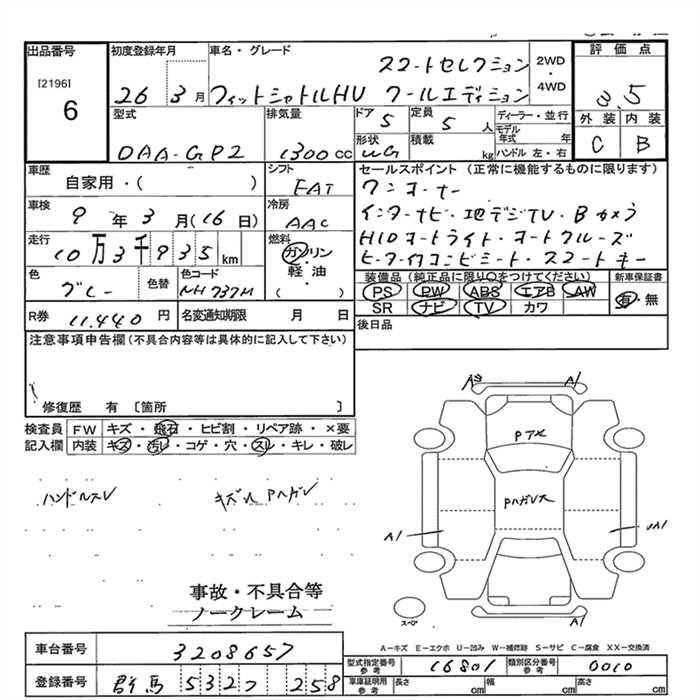 出品番号
[2196]
6
初度登録年月
26 3月
車名・グレード
スマートセレクション
フィットシャトルHV クールエディション
2WD
・
4WD
評価点
3.5
外装 内装
C B
型式
DAA-GP2
排気量
1300cc
ドア
5
定員
5人
ディーラー・並行
モデル年式 年
形状
WG
積載
kg
ハンドル 左・右
車歴
自家用・( )
シフト
FAT
セールスポイント (正常に機能するものに限ります)
ワンオーナー
インターナビ・地デジTV・Bカメラ
HIDオートライト・オートクルーズ
ヒーター付コンビシート・スマートキー
車検
9年3月(16日)
冷房
AAC
走行
10万3千935km
燃料
ガソリン
・
軽・油
( )
色
グレー
色替
色コード
NH737M
装備品 (純正品に限り○をつけてください)
PS PW ABS エアB AW
SR ナビ TV カワ
新車保証書
有・無
R券 11.440円
名変通知期限 月 日
後日品
注意事項申告欄(不具合内容等は具体的に記入して下さい)
修復歴 有 〔箇所 〕
検査員 FW キズ・飛石・ヒビ割・リペア跡・×要
記入欄 内装 キズ・汚レ・コゲ・穴・スレ・キレ・破レ
ハンドルスレ
A1
A1
A1
スペア
事故・不具合等
ノークレーム
A-キズ E-エクボ U-凹み W-補修跡 S-サビ C-腐食 XX-交換済
車台番号 3208657
登録番号 群馬 532 258
型式指定番号 参考 16801
類別区分番号 参考 0010
車庫証明用 参考 長さ cm 幅 cm 高さ cm